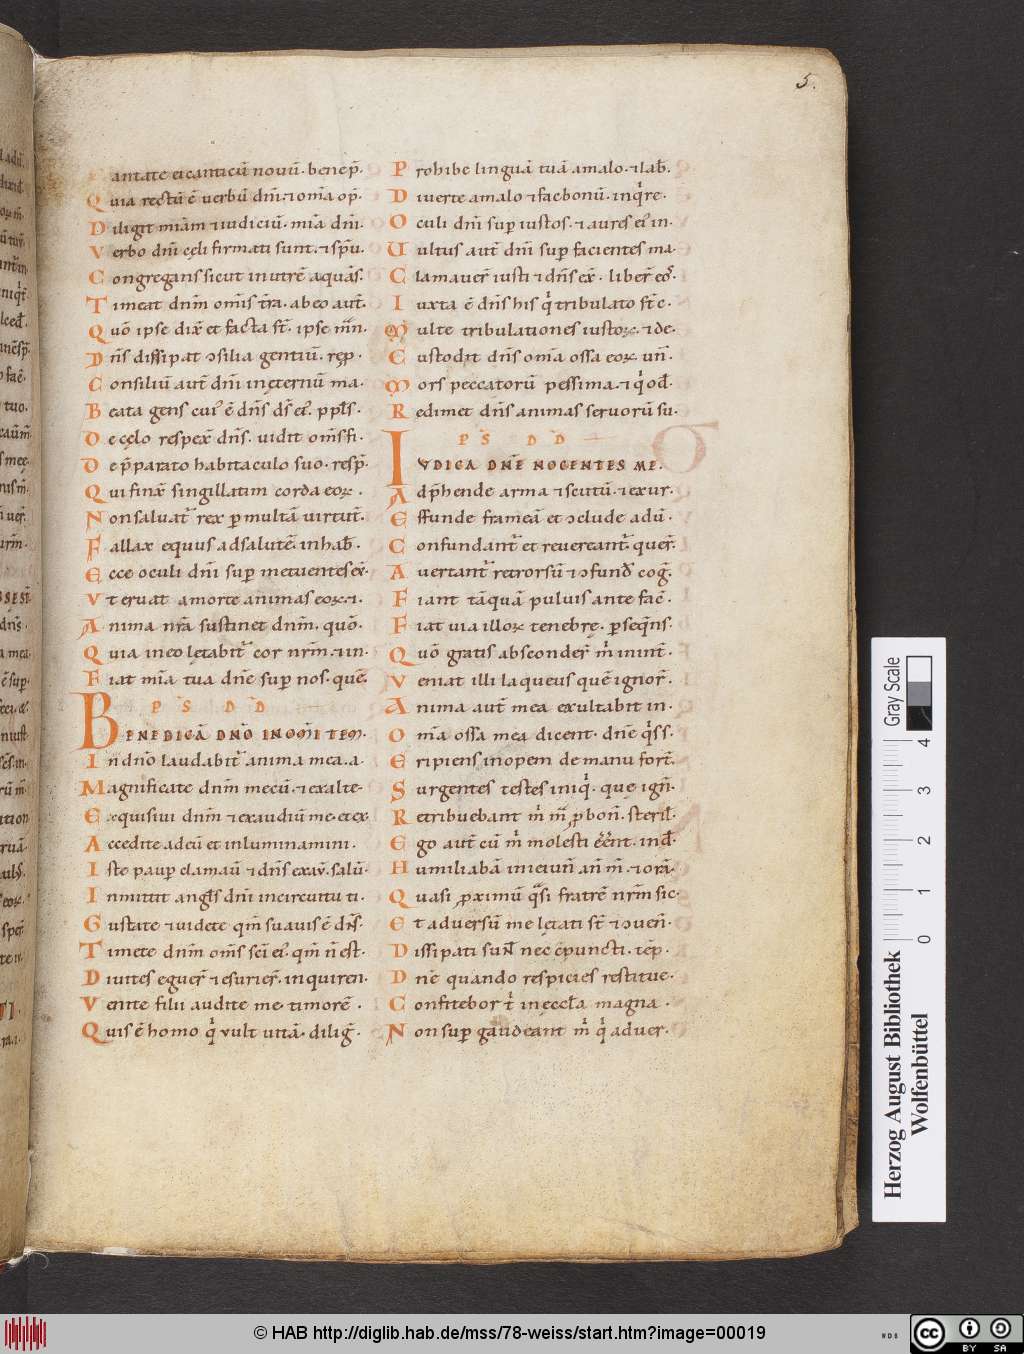 5.
Cantate ei canticū novū. bene p̄.
Quia rectū ē verbū dn̄i. ⁊ om̄ia op̄.
Diligit miām ⁊ iudiciū. mīa dn̄i.
Verbo dn̄i cęli firmati sunt. ⁊ sp̄u.
Congregans sicut in utrē aquas̄.
Timeat dnm̄ om̄is t̄ra. ab eo aut̄.
Quō ipse dix̄ et facta st̄. ipse m̄n.
Dn̄s dissipat ɔsilia gentiū. rep̄.
Consiliū aut̄ dn̄i in ęternū ma.
Beata gens cui᾽ ē dn̄s ds̄ ei᾽. ppl̄s.
De cęlo respex̄ dn̄s. vidit om̄s fi.
De p̄parato habitaculo suo. resp̄.
Qui finx̄ singillatim corda eoꝝ.
Non saluat᷑ rex p multā virtut̄.
Fallax equus ad salutē. in hab̄.
Ecce oculi dn̄i sup metuentes ex̄.
Vt eruat a morte animas eoꝝ. ⁊.
Anima nr̄a sustinet dnm̄. quō.
Quia in eo lętabit᷑ cor nr̄m. ⁊ in.
Fiat mīa tua dn̄e sup nos. quē.
PS DD
BENEDICĀ DNŌ IN OMI TEM.
In dn̄o laudabit᷑ anima mea. a.
Magnificate dnm̄ mecū. ⁊ exalte.
Exquisiui dnm̄ ⁊ exaudiū me. et ex
Accedite ad eū et inluminamini.
Iste paup clamaū ⁊ dn̄s exaū. salū.
Inmittit angl̄s dn̄i in circuitu ti.
Gustate ⁊ videte qm̄ suauis ē dn̄s.
Timete dnm̄ om̄s sc̄i ei᾽. qm̄ n̄ est.
Diuites eguer̄ ⁊ esurier̄. inquiren.
Venite filii audite me. timorē.
Quis ē homo q vult vitā. diliḡ.
Prohibe linguā tuā a malo. ⁊ lab̄.
Diuerte a malo ⁊ fac bonū. inq̄re.
Oculi dn̄i sup iustos. ⁊ aures ei᾽ in.
Uultus aut̄ dn̄i sup facientes ma
Clamauer̄ iusti ⁊ dn̄s ex̄. liber̄ eos̄.
Iuxta ē dn̄s his q tribulato st̄ c.
Multe tribulationes iustoꝝ. ⁊ de.
Custodit dn̄s om̄ia ossa eoꝝ. un̄.
Mors peccatorū pessima. ⁊ q od̄.
Redimet dn̄s animas seruorū su.
PS DD
IVDICA DN̄E NOCENTES ME.
Adp̄hende arma ⁊ scutū. ⁊ exur.
Effunde frameā et ɔclude adū.
Confundant᷑ et revereant᷑. quer̄.
Avertant᷑ retrorsū ⁊ ɔfund̄ coḡ.
Fiant tāquā puluis ante faē.
Fiat via illoꝝ tenebrę. p seqn̄s.
Quō gratis absconder̄ m inint̄.
Veniat illi laqueus quē ignor̄.
Anima aut̄ mea exultabit in.
Om̄ia ossa mea dicent. dn̄e qs̄s.
Eripiens inopem de manu fort̄.
Surgentes testes iniq. que ign̄.
Retribuebant m m̄ p bon̄. steril̄.
Ego aut̄ cū m molesti eēnt. ind̄.
Humiliabā in ieiun̄ an̄ m̄. ⁊ orā.
Quasi proximū qsi fratrē nr̄m sic.
Et adversū me lętati st̄ ⁊ ɔuen̄.
Dissipati sun̄ nec ɔpuncti. tēp.
Dn̄e quando respicies restitue.
Confitebor t in ęccl̄a magna.
Non sup gaudeant m q aduer.
Gray Scale
0 1 2 3 4
Herzog August Bibliothek
Wolfenbüttel
© HAB http://diglib.hab.de/mss/78-weiss/start.htm?image=00019
cc BY SA